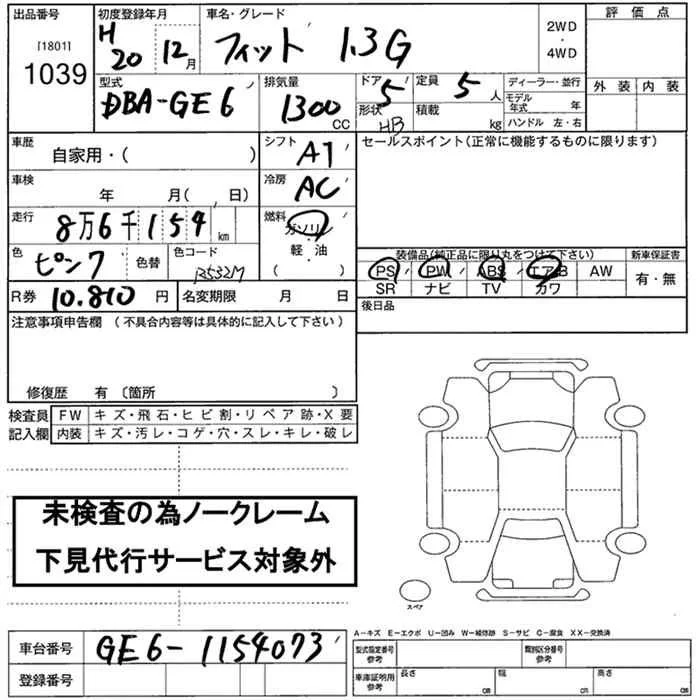 出品番号 初度登録年月 車名・グレード 評価点
[1801] H 20 12月 フィット 1.3G 2WD・4WD
1039 外装 内装
型式 排気量 ドア 定員 ディーラー・並行
DBA-GE6 1300 CC 5 5人 モデル年式 年
形状 HB 積載 kg ハンドル 左・右
車歴 シフト セールスポイント(正常に機能するものに限ります)
自家用・( ) AT
車検 冷房
年 月( 日) AC
走行 燃料
8万6千154km ガソリン
軽・油
色 色コード 装備品(純正品に限り丸をつけて下さい) 新車保証書
ピンク 色替 PS PW ABS エアB AW 有・無
SR ナビ TV カワ
R券 10.810円 名変期限 月 日 後日品
注意事項申告欄(不具合内容等は具体的に記入して下さい)
修復歴 有 〔箇所 〕
検査員 FW キズ・飛石・ヒビ割・リペア跡・X要
記入欄 内装 キズ・汚レ・コゲ・穴・スレ・キレ・破レ
未検査の為ノークレーム
下見代行サービス対象外
スペア
A－キズ E－エクボ U－凹み W－補修跡 S－サビ C－腐食 XX－交換済
車台番号 GE6-1154073 型式指定番号 参考 類別区分番号 参考
登録番号 車庫証明用 参考 長さ cm 幅 cm 高さ cm